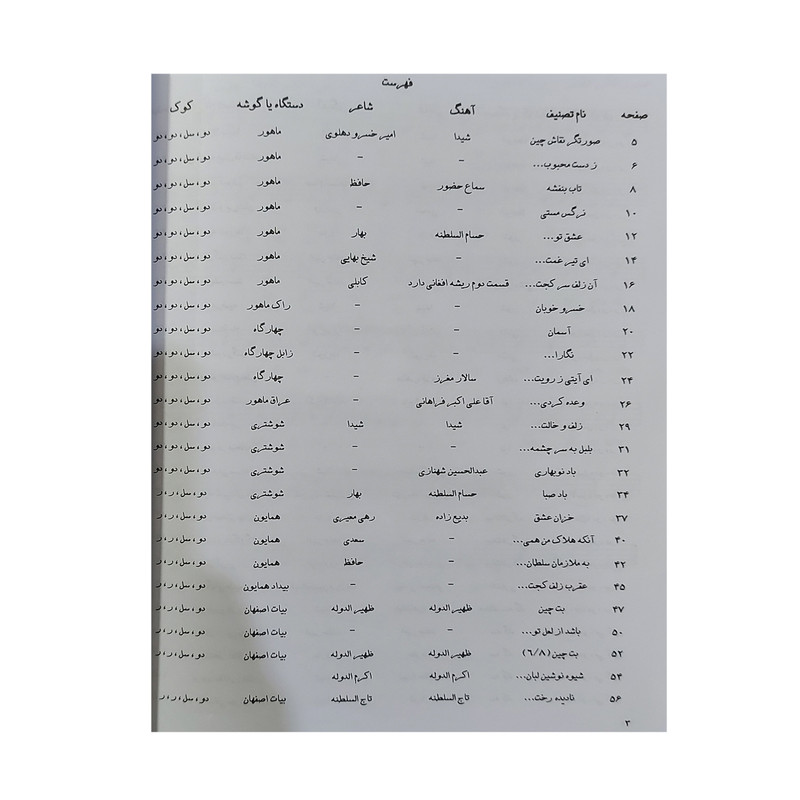 فهرست
صفحه نام تصنیف آهنگ شاعر دستگاه یا گوشه کوک
۵ صورتگر نقاش چین شیدا امیر خسرو دهلوی ماهور دو، سل، دو، دو
۶ ز دست محبوب... – – ماهور دو، سل، دو، دو
۸ تاب بنفشه سماع حضور حافظ ماهور دو، سل، دو، دو
۱۰ نرگس مستی – – ماهور دو، سل، دو، دو
۱۲ عشق تو... حسام السلطنه بهار ماهور دو، سل، دو، دو
۱۴ ای تیر غمت... – شیخ بهایی ماهور دو، سل، دو، دو
۱۶ آن زلف سر کجت... قسمت دوم ریشه افغانی دارد کابلی ماهور دو، سل، دو، دو
۱۸ خسرو خوبان – – راک ماهور دو، سل، دو، دو
۲۰ آسمان – – چهارگاه دو، سل، دو، دو
۲۲ نگارا... – – زابل چهارگاه دو، سل، دو، دو
۲۴ ای آیتی ز رویت... سالار معزز – چهارگاه دو، سل، دو، دو
۲۶ وعده کردی... آقا علی اکبر فراهانی – عراق ماهور دو، سل، دو، دو
۲۹ زلف و خالت... شیدا شیدا شوشتری دو، سل، دو، دو
۳۱ بلبل به سر چشمه... – – شوشتری دو، سل، دو، دو
۳۲ باد نوبهاری عبدالحسین شهنازی – شوشتری دو، سل، دو، دو
۳۴ باد صبا حسام السلطنه بهار شوشتری دو، سل، ر، ر
۳۷ خزان عشق بدیع زاده رهی معیری همایون دو، سل، ر، ر
۴۰ آنکه هلاک من همی... – سعدی همایون دو، سل، ر، ر
۴۲ به ملازمان سلطان... – حافظ همایون دو، سل، ر، ر
۴۵ عقرب زلف کجت... – – بیداد همایون دو، سل، ر، ر
۴۷ بت چین ظهیر الدوله ظهیر الدوله بیات اصفهان دو، سل، ر، ر
۵۰ باشد از لعل تو... – – بیات اصفهان دو، سل، ر، ر
۵۲ بت چین (۶/۸) ظهیر الدوله ظهیر الدوله بیات اصفهان دو، سل، ر، ر
۵۴ شیوه نوشین لبان... اکرم الدوله اکرم الدوله
۵۶ نادیده رخت... تاج السلطنه تاج السلطنه بیات اصفهان دو، سل، ر، ر
۳